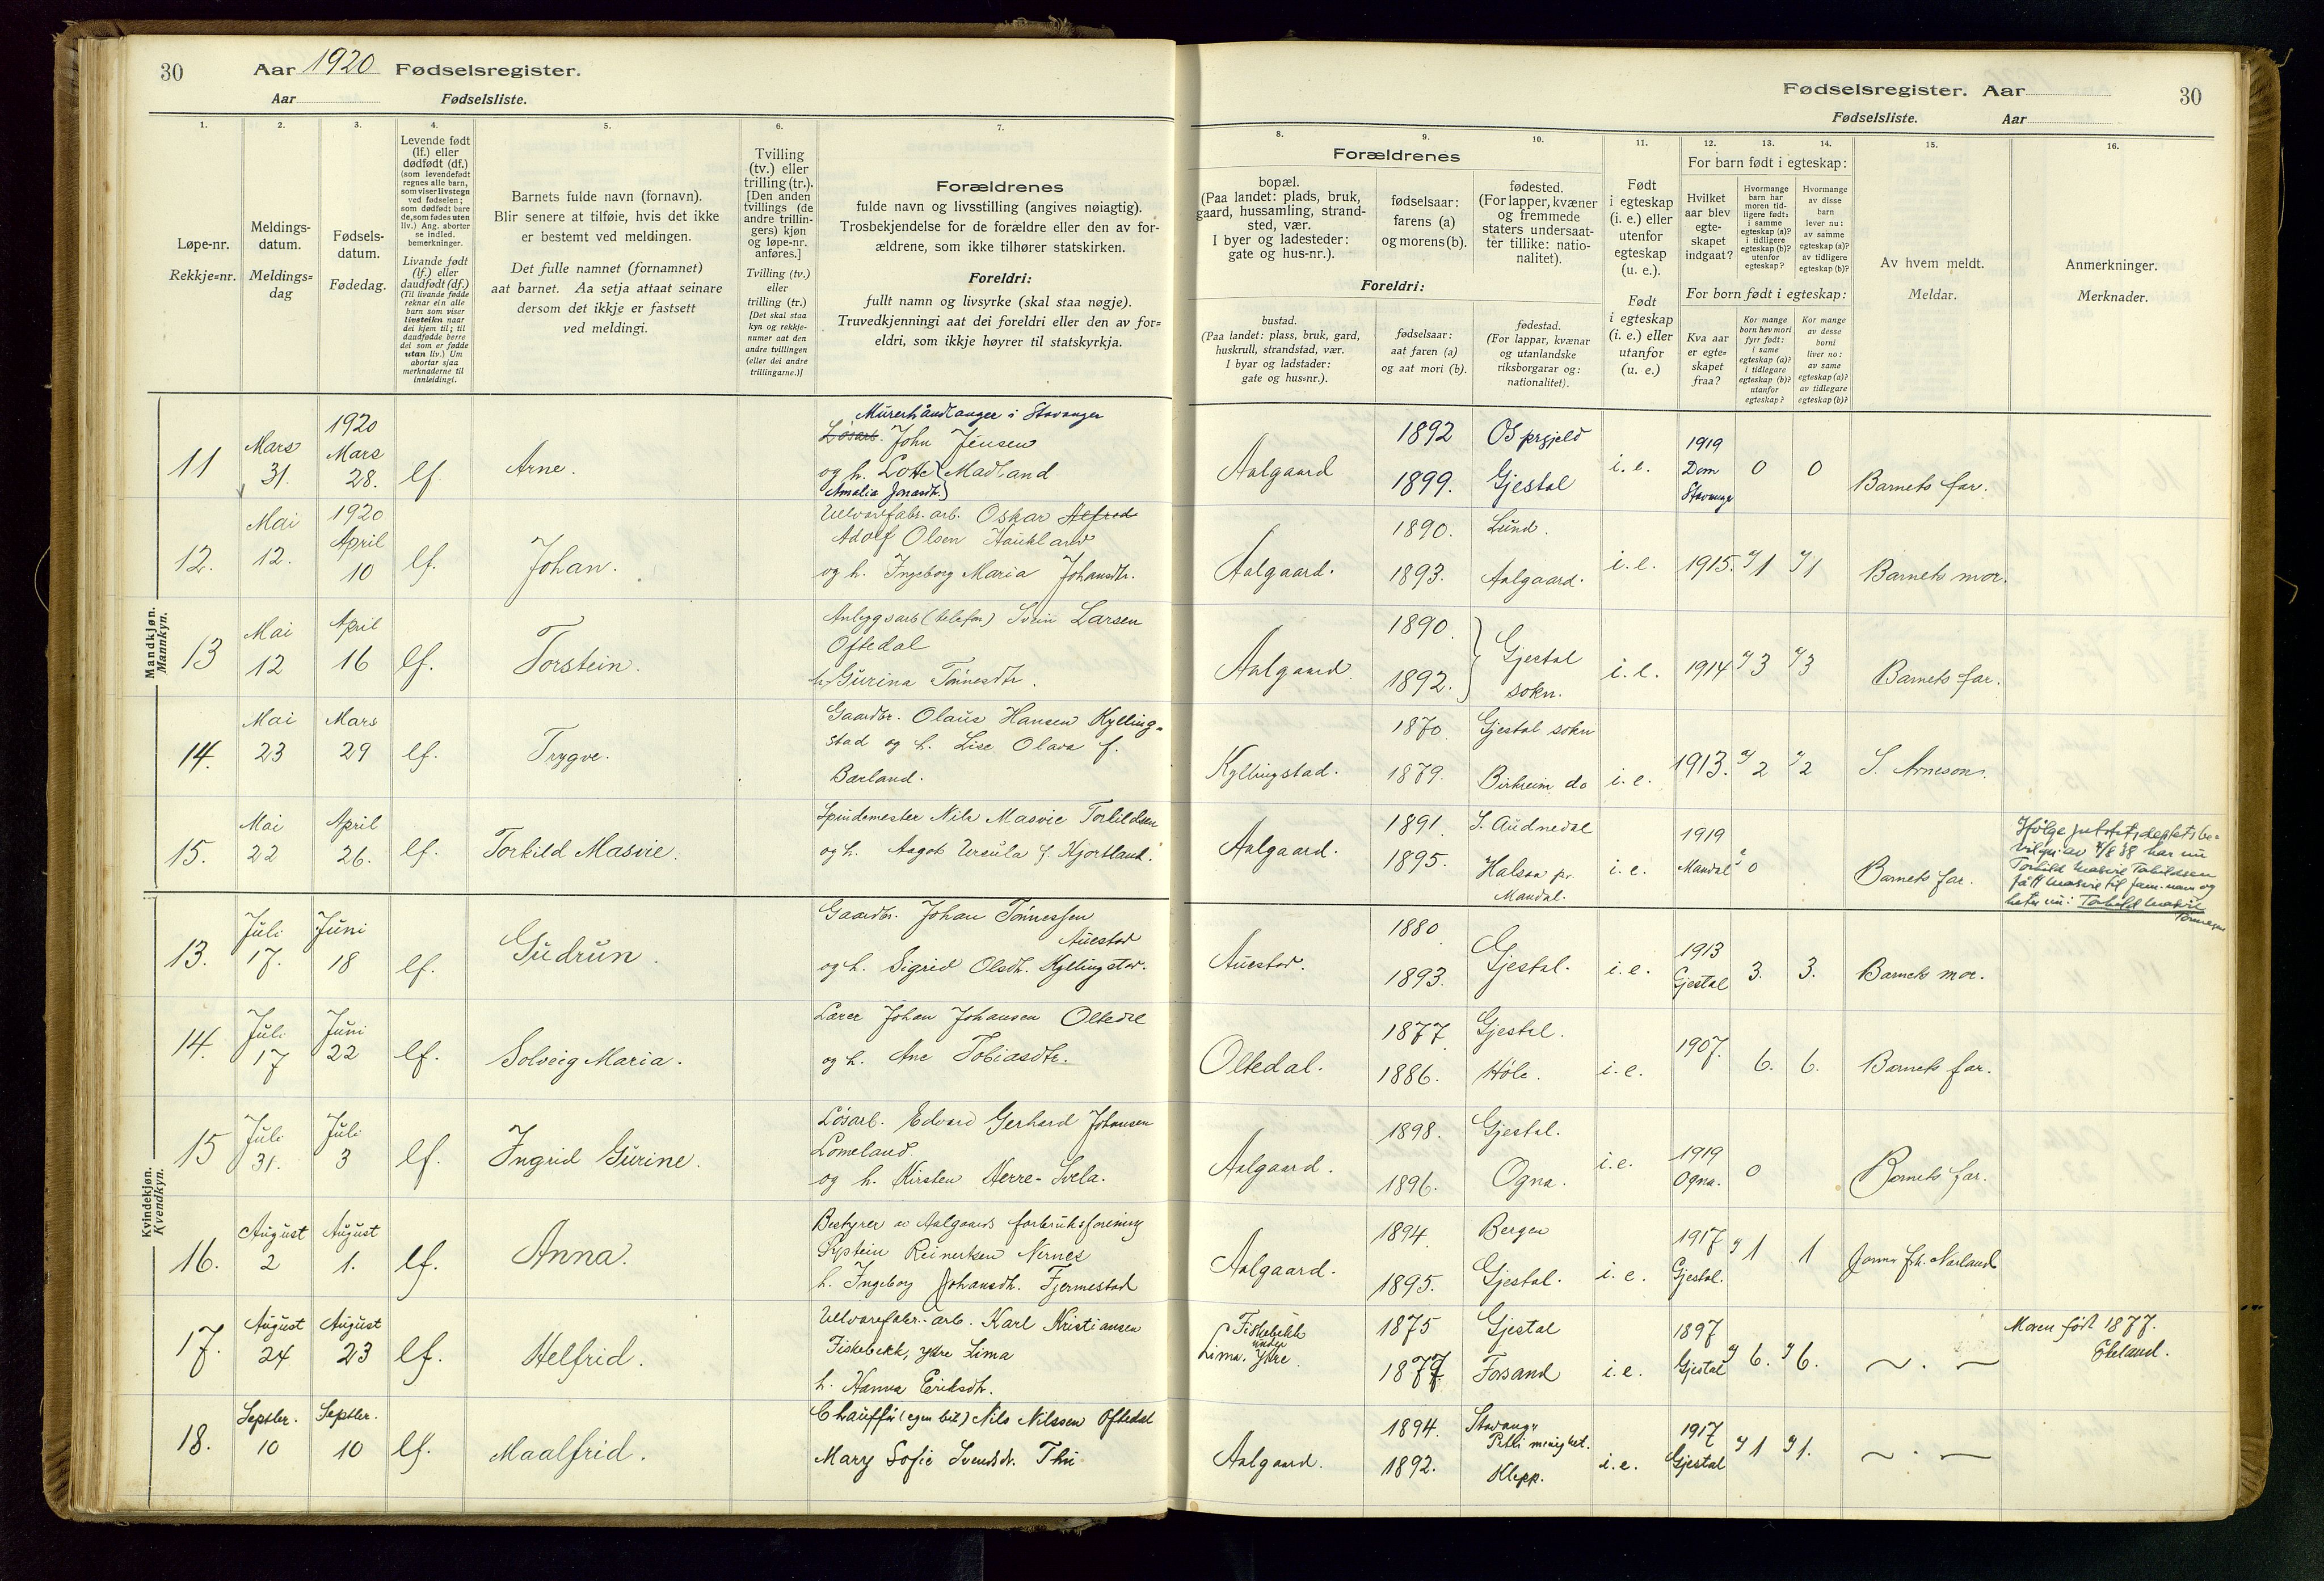 30 Aar 1920 Fødselsregister.
Aar Fødselsliste.
Fødselsregister. Aar 30
Fødselsliste. Aar
1. 2. 3. 4. 5. 6. 7. 8. 9. 10. 11. 12. 13. 14. 15. 16.
Løpe-nr.
Rekkje=nr.
Meldings-
datum.
Meldings=
dag
Fødsels-
datum.
Fødedag.
Levende født
(lf.) eller
dødfødt (df.)
(som levendefødt
regnes alle barn,
som viser livstegn
ved fødselen;
som dødfødt bare
de, som fødes uten
liv.) Ang. aborter
se indled.
bemerkninger.
Livande født
(lf.) eller
daudfødt (df.)
(Til livande fødde
reknar ein alle
barn som viser
livsteikn naar
dei kjem til; til
daudfødde berre
dei som er fødde
utan liv.) Um
abortar sjaa
merknaderne til
innleidingi.
Barnets fulde navn (fornavn).
Blir senere at tilføie, hvis det ikke
er bestemt ved meldingen.
Det fulle namnet (fornamnet)
aat barnet. Aa setja attaat seinare
dersom det ikkje er fastsett
ved meldingi.
Tvilling
(tv.) eller
trilling (tr.).
[Den anden
tvillings (de
andre trillin-
gers) kjøn
og løpe-nr.
anføres.]
Tvilling (tv.)
eller
trilling (tr.)
[Det skal staa
kyn og rekkje-
numer aat den
andre tvillingen
(eller dei andre
trillingarne.)]
Forældrenes
fulde navn og livsstilling (angives nøiagtig).
Trosbekjendelse for de forældre eller den av for-
ældrene, som ikke tilhører statskirken.
Foreldri:
fullt namn og livsyrke (skal staa nøgje).
Truvedkjenningi aat dei foreldri eller den av for=
eldri, som ikkje høyrer til statskyrkja.
Forældrenes
bopæl.
(Paa landet: plads, bruk,
gaard, hussamling, strand-
sted, vær.
I byer og ladesteder:
gate og hus-nr.).
fødselsaar:
farens (a)
og morens (b).
fødested.
(For lapper, kvæner
og fremmede
staters undersaat-
ter tillike: natio-
nalitet).
Foreldri:
bustad.
(Paa landet: plass, bruk, gard,
huskrull, strandstad, vær.
I byar og ladstader:
gate og hus=nr.).
fødselsaar:
aat faren (a)
og aat mori (b).
fødestad.
(For lappar, kvænar
og utanlandske
riksborgarar og:
nationalitet).
Født
i egteskap
(i. e.) eller
utenfor
egteskap
(u. e.).
Født
i egteskap
(i. e.) eller
utanfor
(u. e.)
For barn født i egteskap:
Hvilket
aar blev
egte-
skapet
indgaat?
Hvormange
barn har
moren tid-
ligere født:
i samme
egteskap (a)?
i tidligere
egteskap (b)?
utenfor
egteskap?
Hvormange
av disse
barn
lever nu:
av samme
egteskap (a)?
av tidligere
egteskap (b)?
For born født i egteskap:
Kva aar
er egte=
skapet
fraa?
Kor mange
born hev mori
fyrr født:
i same
egteskap (a)?
i tidlegare
egteskap (b)?
utanfor
egteskap?
Kor mange
av desse
borni
liver no:
av same
egteskap (a)?
av tidlegare
egteskap (b)?
Av hvem meldt.
Meldar.
Anmerkninger.
Merknader.
Mandkjøn.
Mannkyn.
11 Mars 31. 1920 Mars 28. lf. Arne.
Murerhåndlanger i Stavanger
Løsarb. John Jensen
og h. Lotte Madland
Amalia Jonasdtr.
Aalgaard 1892 1899. Os prgjeld Gjestal i. e. 1919 Dom Stavanger 0 0 Barnets far.
12. Mai 12. 1920 April 10 lf. Johan.
Uldvarefabr. arb. Oskar Alfred
Adolf Olsen Haukland
og h. Ingeborg Maria Johansdtr.
Aalgaard. 1890. 1893. Lund. Aalgaard. i. e. 1915. 1 1 Barnets mor.
13 Mai 12 April 16 lf. Torstein.
Anleggsarb (telefon) Svein Larsen
Oftedal
h. Gurina Tønnesdtr.
Aalgaard. 1890. 1892. Gjestal sokn. i. e. 1914 3 3 Barnets far.
14. Mai 23 Mars 29 lf. Trygve.
Gaardbr. Olaus Hansen Kylling-
stad og h. Lise Olava f.
Bærland.
Kyllingstad. 1870 1879. Gjestal sokn Birkreim do i. e. 1913. 2 2 S. Arneson.
15. Mai 22 April 26. lf. Torkild Masvie.
Spindemester Nils Masvie Torkildsen
og h. Aagot Ursula f. Hjortland.
Aalgaard. 1891 1895. S. Audnedal Halsaa pr. Mandal. i. e. 1919 Mandal 0 Barnets far.
Ifølge justitsdeptets be-
vilgn. av 4/8 38 har nu
Torkild Masvie Torkildsen
fått Masvie til fam. navn og
heter nu: Torkild Masvie
Kvindekjøn.
Kvendkyn.
13. Juli 17. Juni 18 lf. Gudrun.
Gaardbr. Johan Tønnessen
Auestad
og h. Sigrid Olsdtr. Kyllingstad.
Auestad. 1880 1893. Gjestal. i. e. 1913 Gjestal 3. 3. Barnets mor.
14. Juli 17 Juni 22 lf. Solveig Maria.
Lærer Johan Johansen Oltedal
og h. Ane Tobiasdtr.
Oltedal. 1877 1886. Gjestal. Høle. i. e. 1907. 6. 6. Barnets far.
15 Juli 31. Juli 3 lf. Ingrid Gurine.
Løsarb. Edvard Gerhard Johansen
Lomeland
og h. Kirsten Herre-Svela.
Aalgaard. 1898. 1896. Gjestal. Ogna. i. e. 1919 Ogna. 0 Barnets far.
16. August 2 August 1. lf. Anna.
Bestyrer av Aalgaards forbruksforening
Reinertsen
h. Ingeborg Johansdtr. Fjermestad
Aalgaard. 1894 1895. Bergen Gjestal. i. e. 1917 Gjestal. 1 1
17. August 24 August 23 lf. Helfrid.
Ulvarefabr.-arb. Karl Kristiansen
Fiskebekk, Ytre Lima
h. Hanna Eriksdtr.
Fiskebekk under Lima. Ytre. 1875 1877 Gjestal Forsand i. e. 1897 Gjestal 6. 6. ~ . ~
Moren født 1877.
18. Septbr. 10 Septbr. 10 lf. Maalfrid.
Chauffør (egen bil) Nils Nilssen Oftedal
Mary Sofie Svendsdtr. Thu
Aalgaard. 1894. 1892. Stavanger Petri menighet. Klepp. i. e. 1917 Gjestal 1 1. ~ . ~